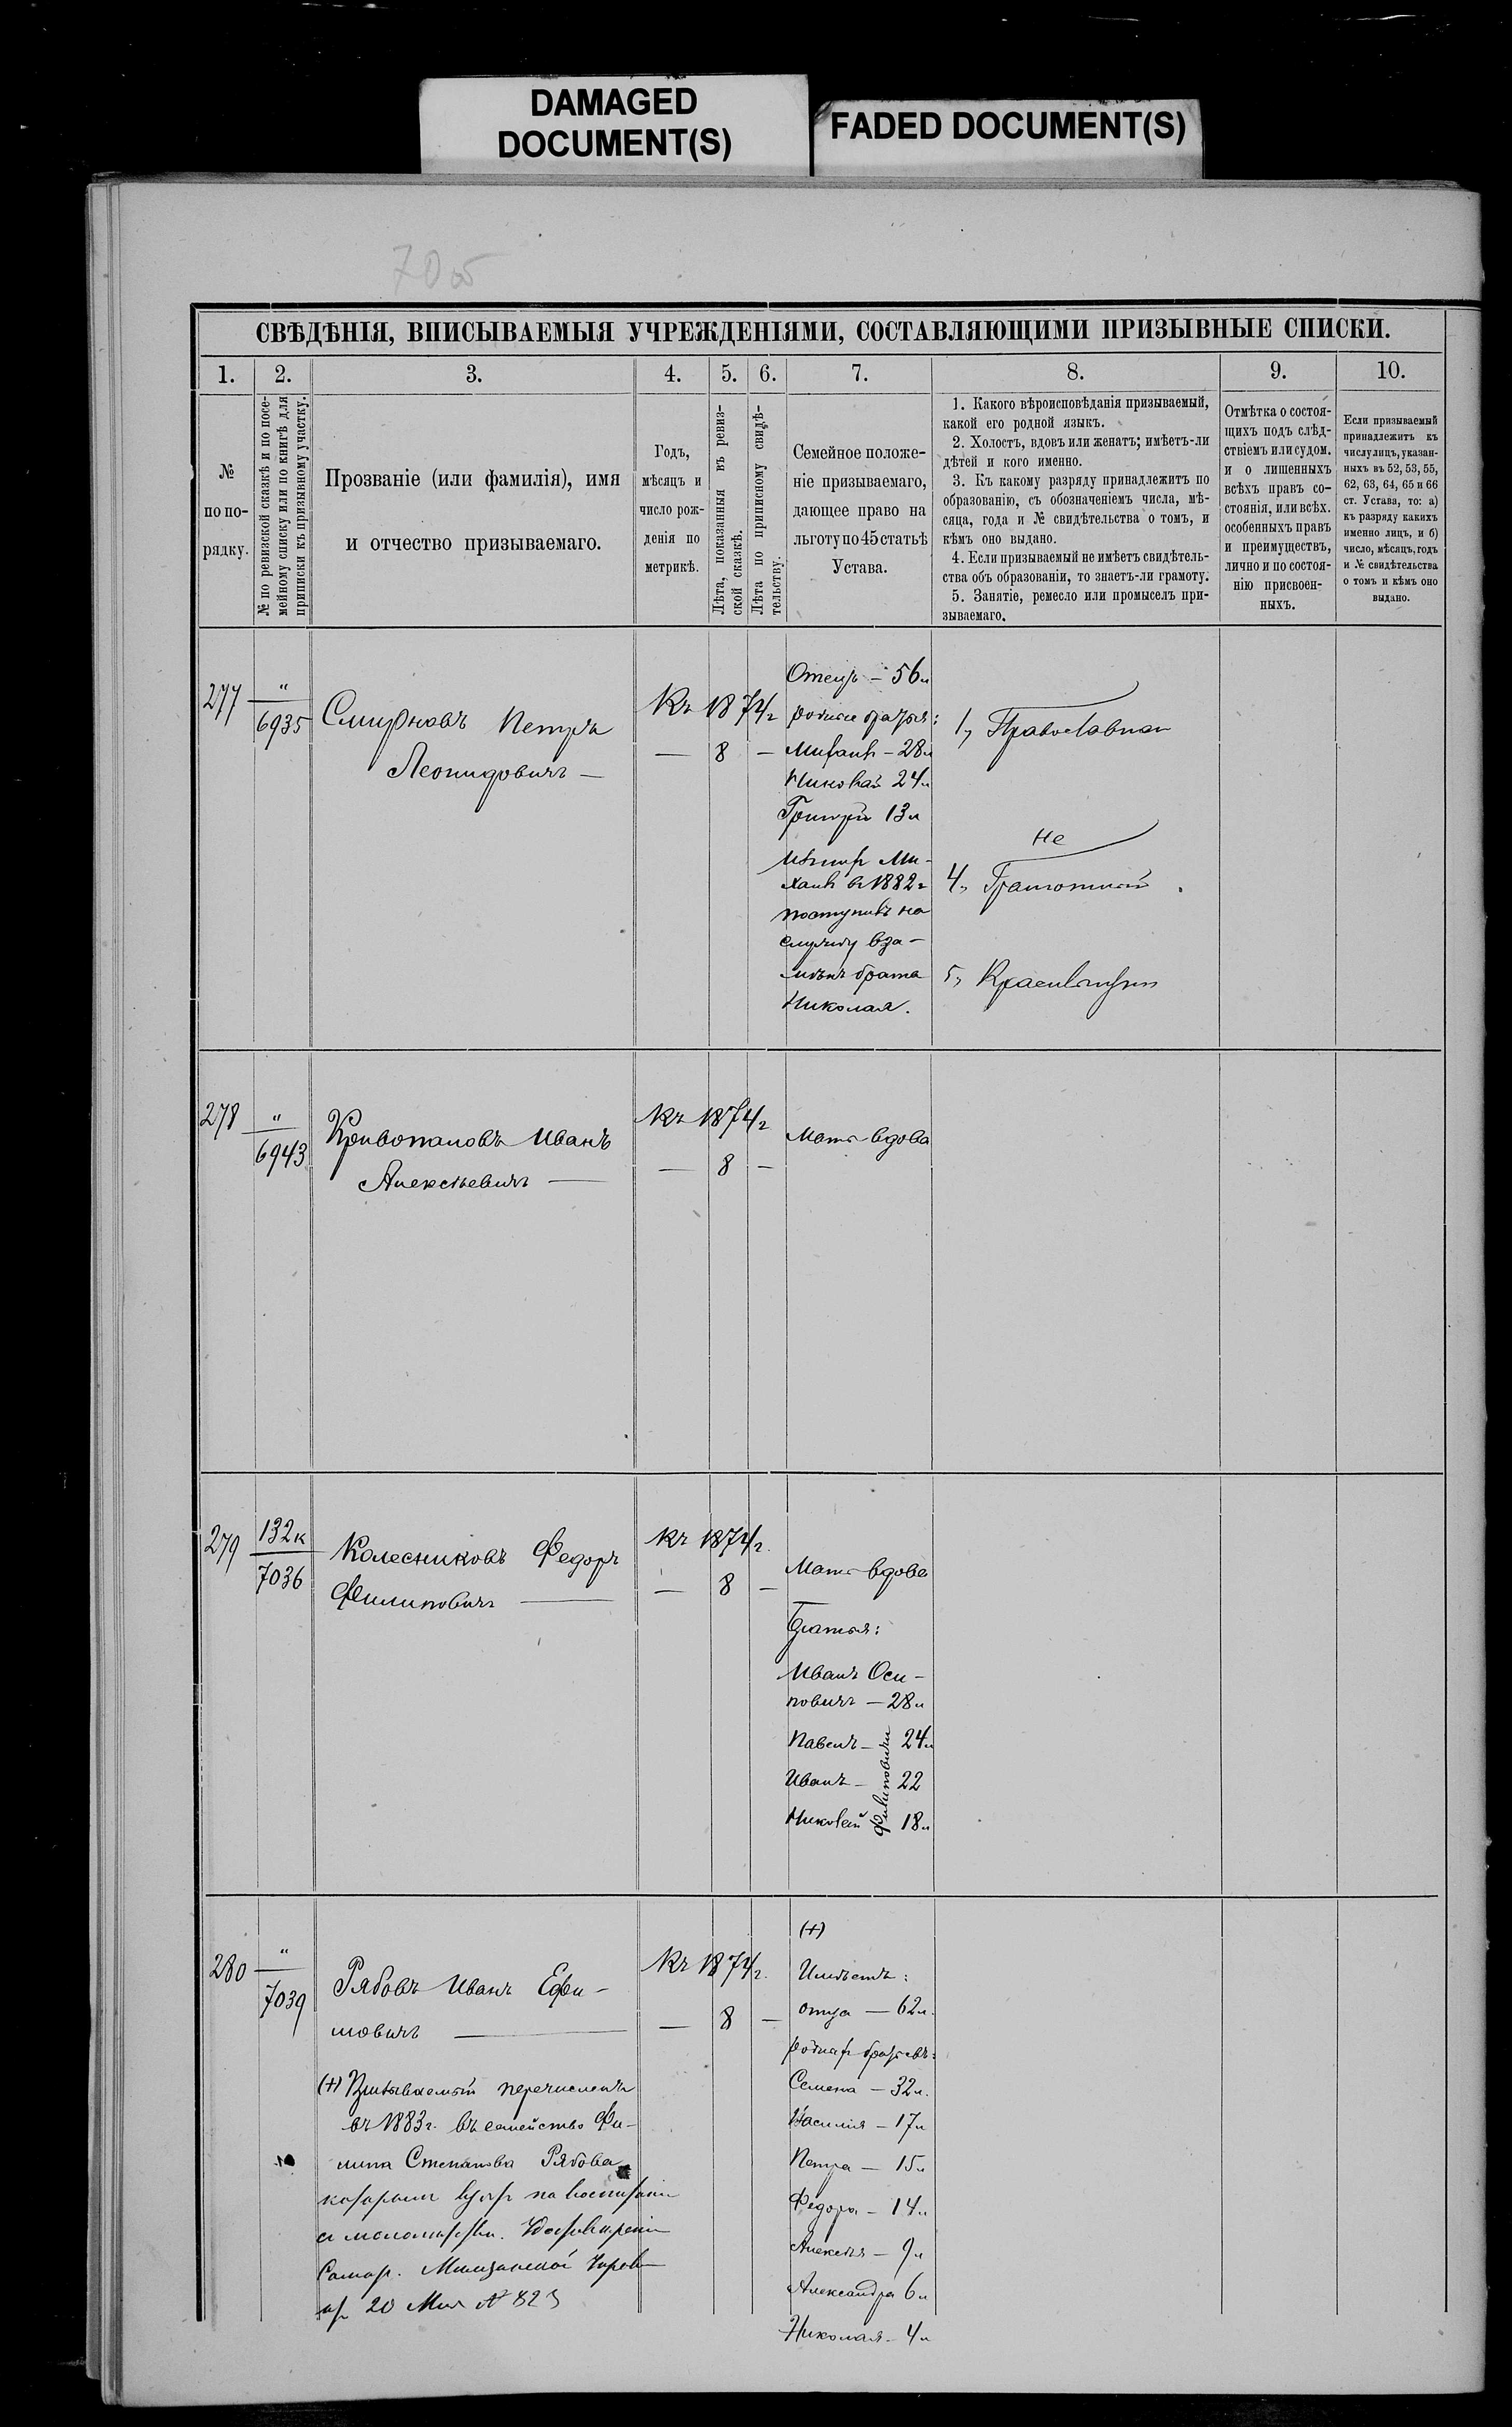 DAMAGED
DOCUMENT(S)
FADED DOCUMENT(S)
70 об
СВѢДѢНІЯ, ВПИСЫВАЕМЫЯ УЧРЕЖДЕНІЯМИ, СОСТАВЛЯЮЩИМИ ПРИЗЫВНЫЕ СПИСКИ.
1. 2. 3. 4. 5. 6. 7. 8. 9. 10.
№
по по-
рядку.
№ по ревизской сказкѣ и по посе-
мейному списку или по книгѣ для
приписки къ призывному участку.
Прозваніе (или фамилія), имя
и отчество призываемаго.
Годъ,
мѣсяцъ и
число рож-
денія по
метрикѣ.
Лѣта, показанныя въ ревиз-
ской сказкѣ.
Лѣта по приписному свидѣ-
тельству.
Семейное положе-
ніе призываемаго,
дающее право на
льготу по 45 статьѣ
Устава.
1. Какого вѣроисповѣданія призываемый,
какой его родной языкъ.
2. Холостъ, вдовъ или женатъ; имѣетъ-ли
дѣтей и кого именно.
3. Къ какому разряду принадлежитъ по
образованію, съ обозначеніемъ числа, мѣ-
сяца, года и № свидѣтельства о томъ, и
кѣмъ оно выдано.
4. Если призываемый не имѣетъ свидѣтель-
ства объ образованіи, то знаетъ-ли грамоту.
5. Занятіе, ремесло или промыселъ при-
зываемаго.
Отмѣтка о состоя-
щихъ подъ слѣд-
ствіемъ или судом.
и о лишенныхъ
всѣхъ правъ со-
стоянія, или всѣх.
особенныхъ правъ
и преимуществъ,
лично и по состоя-
нію присвоен-
ныхъ.
Если призываемый
принадлежитъ къ
числу лицъ, указан-
ныхъ въ 52, 53, 55,
62, 63, 64, 65 и 66
ст. Устава, то: а)
къ разряду какихъ
именно лицъ, и б)
число, мѣсяцъ, годъ
и № свидѣтельства
о томъ и кѣмъ оно
выдано.
277
"
6935
Смирновъ Петръ
Леонидовичъ —
Къ 1874 г
— 8 —
Отецъ — 56 л
родные братья:
Михаилъ — 28 л
Николай 24 л
Григорій 13 л
Ми-
хаилъ въ 1882 г
поступилъ на
службу вза-
мѣнъ брата
Николая.
1, Православнаго
не
4, Грамотный.
5,
278
"
6943
Кривопаловъ Иванъ
Алексѣевичъ —
Къ 1874 г
— 8 —
Мать вдова
279
132 к
7036
Колесниковъ Федоръ
Филиповичъ —
Къ 1874 г.
— 8 —
Мать вдова
Братья:
Иванъ Оси-
повичъ — 28 л
Павелъ — 24 л
Иванъ — 22
Николай 18 л
Филиповичи
280
"
7039
Рябовъ Иванъ Ефи-
мовичъ —
Къ 1874 г.
— 8 —
(+) Призываемый перечисленъ
въ 1883 г. въ семейство Фи-
липа Степанова Рябова
которымъ взятъ на воспитаніе
съ малолѣтства.
Самар. Мѣщанской Управы
20 Мая №
(+)
Имѣетъ:
отца — 62 л.
родныхъ братьевъ:
Семена — 32 л.
Василія — 17 л
Петра — 15 л
Федора — 14 л
Алексѣя — 9 л
Александра 6 л
Николая — 4 л